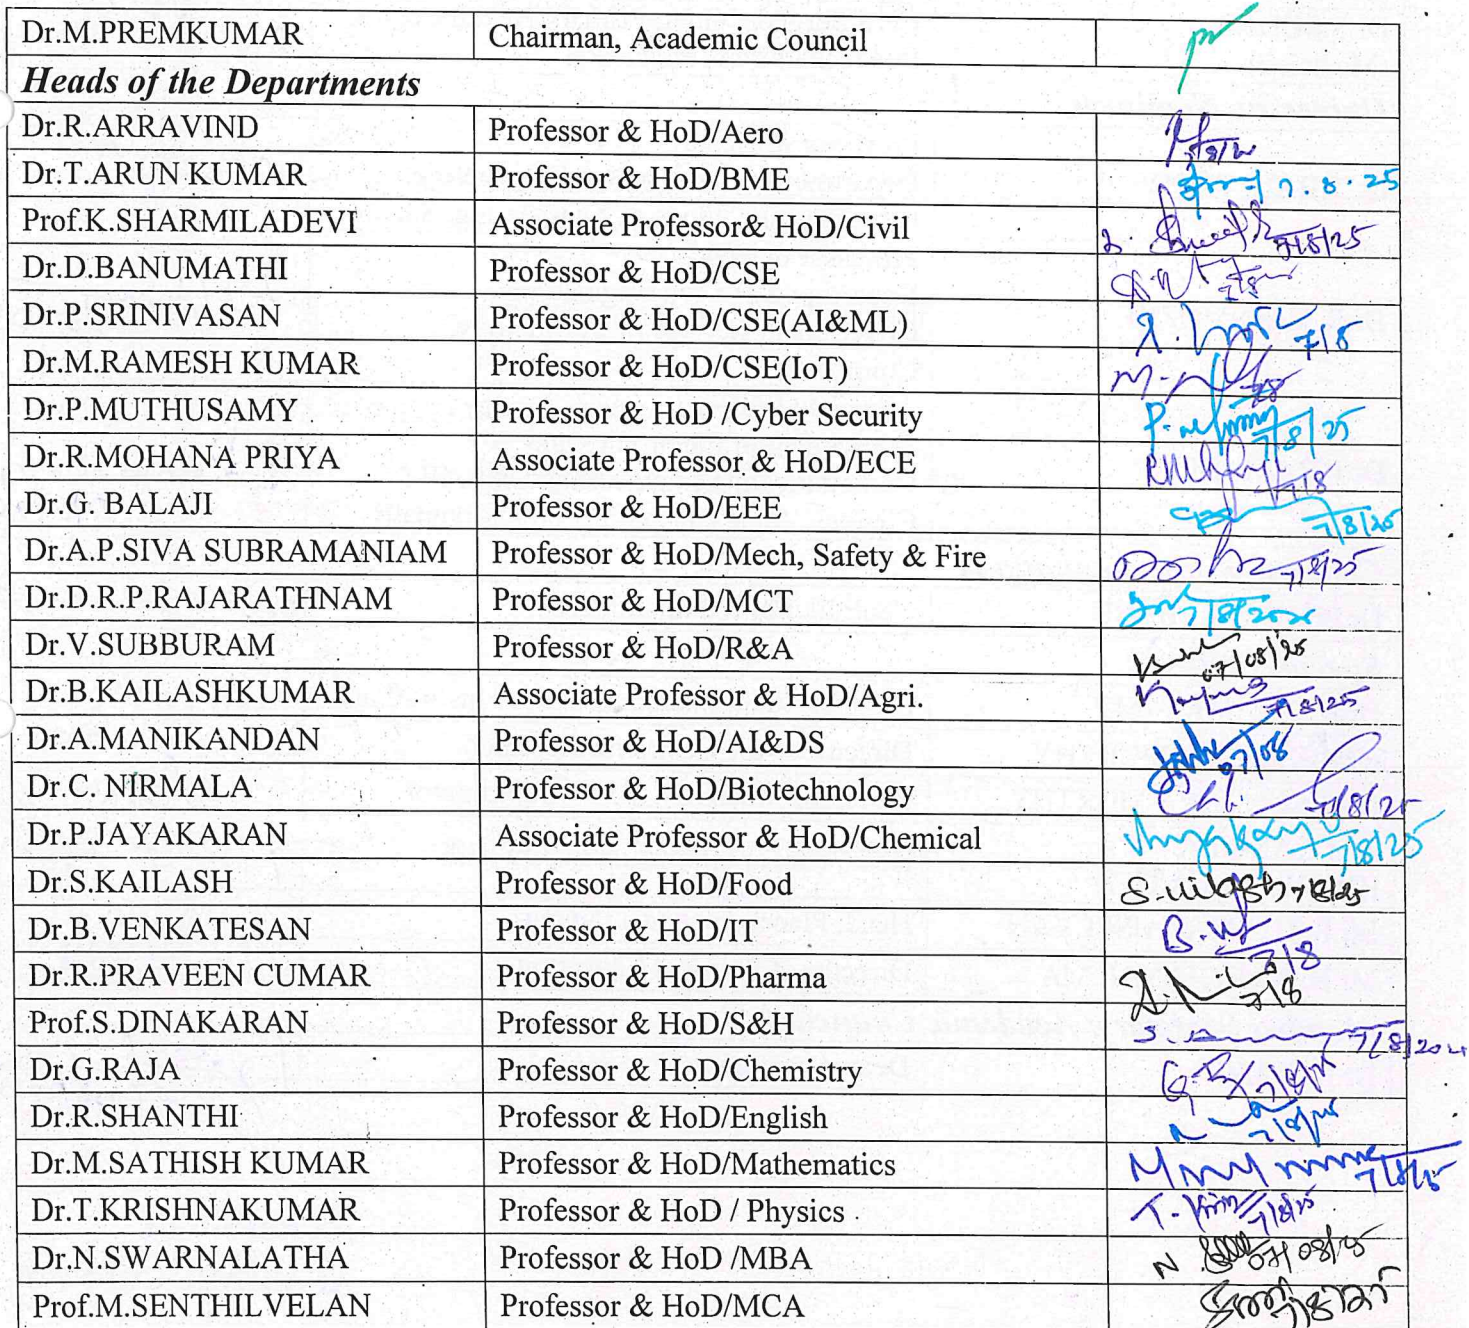 Dr.M.PREMKUMAR Chairman, Academic Council
Heads of the Departments
Dr.R.ARRAVIND Professor & HoD/Aero
Dr.T.ARUN KUMAR Professor & HoD/BME 7.8.25
Prof.K.SHARMILADEVI Associate Professor& HoD/Civil 7/8/25
Dr.D.BANUMATHI Professor & HoD/CSE 7/8
Dr.P.SRINIVASAN Professor & HoD/CSE(AI&ML) 7/8
Dr.M.RAMESH KUMAR Professor & HoD/CSE(IoT)
Dr.P.MUTHUSAMY Professor & HoD /Cyber Security 7/8/25
Dr.R.MOHANA PRIYA Associate Professor & HoD/ECE 7/8
Dr.G. BALAJI Professor & HoD/EEE 7/8/25
Dr.A.P.SIVA SUBRAMANIAM Professor & HoD/Mech, Safety & Fire 7/8/25
Dr.D.R.P.RAJARATHNAM Professor & HoD/MCT
Dr.V.SUBBURAM Professor & HoD/R&A 07/08/25
Dr.B.KAILASHKUMAR Associate Professor & HoD/Agri. 7/8/25
Dr.A.MANIKANDAN Professor & HoD/AI&DS 07/08
Dr.C. NIRMALA Professor & HoD/Biotechnology 7/8/25
Dr.P.JAYAKARAN Associate Professor & HoD/Chemical 7/8/25
Dr.S.KAILASH Professor & HoD/Food 7/8/25
Dr.B.VENKATESAN Professor & HoD/IT 7/8
Dr.R.PRAVEEN CUMAR Professor & HoD/Pharma 7/8
Prof.S.DINAKARAN Professor & HoD/S&H
Dr.G.RAJA Professor & HoD/Chemistry
Dr.R.SHANTHI Professor & HoD/English
Dr.M.SATHISH KUMAR Professor & HoD/Mathematics 7/8/25
Dr.T.KRISHNAKUMAR Professor & HoD / Physics 7/8/25
Dr.N.SWARNALATHA Professor & HoD /MBA 07/08/25
Prof.M.SENTHILVELAN Professor & HoD/MCA 7/8/25